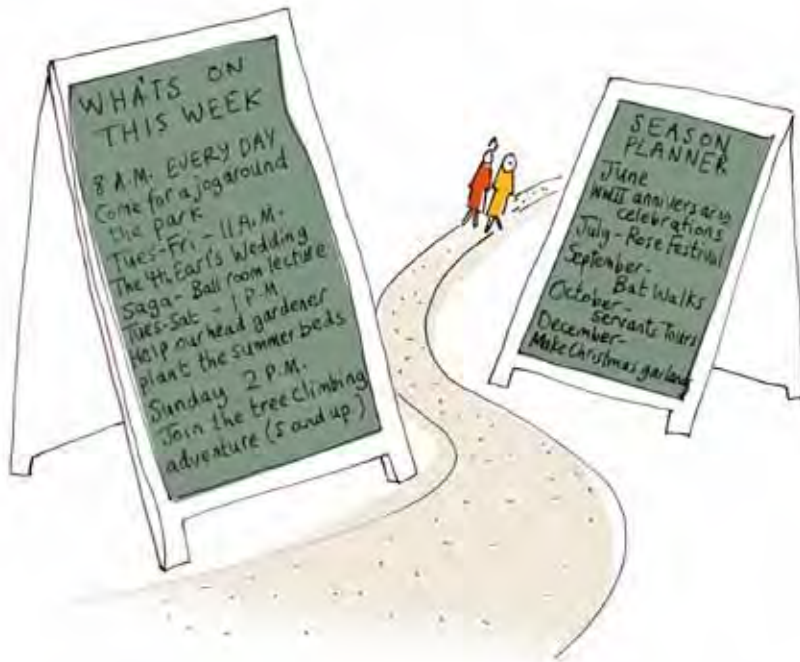 WHATS ON
THIS WEEK
8 A.M. EVERY DAY
Come for a jog around
the park
Tues-Fri - 11 A.M.
The 4th Earl's Wedding
Saga - Ball room lecture
Tues-Sat - 1 P.M
Help our head gardener
plant the summer beds
Sunday 2 P.M.
Join the tree climbing
adventure (5 and up)
SEASON
PLANNER
June
WWII anniversary
celebrations
July - Rose Festival
September-
Bat Walks
October -
servants Tours
December-
Make Christmas garlands